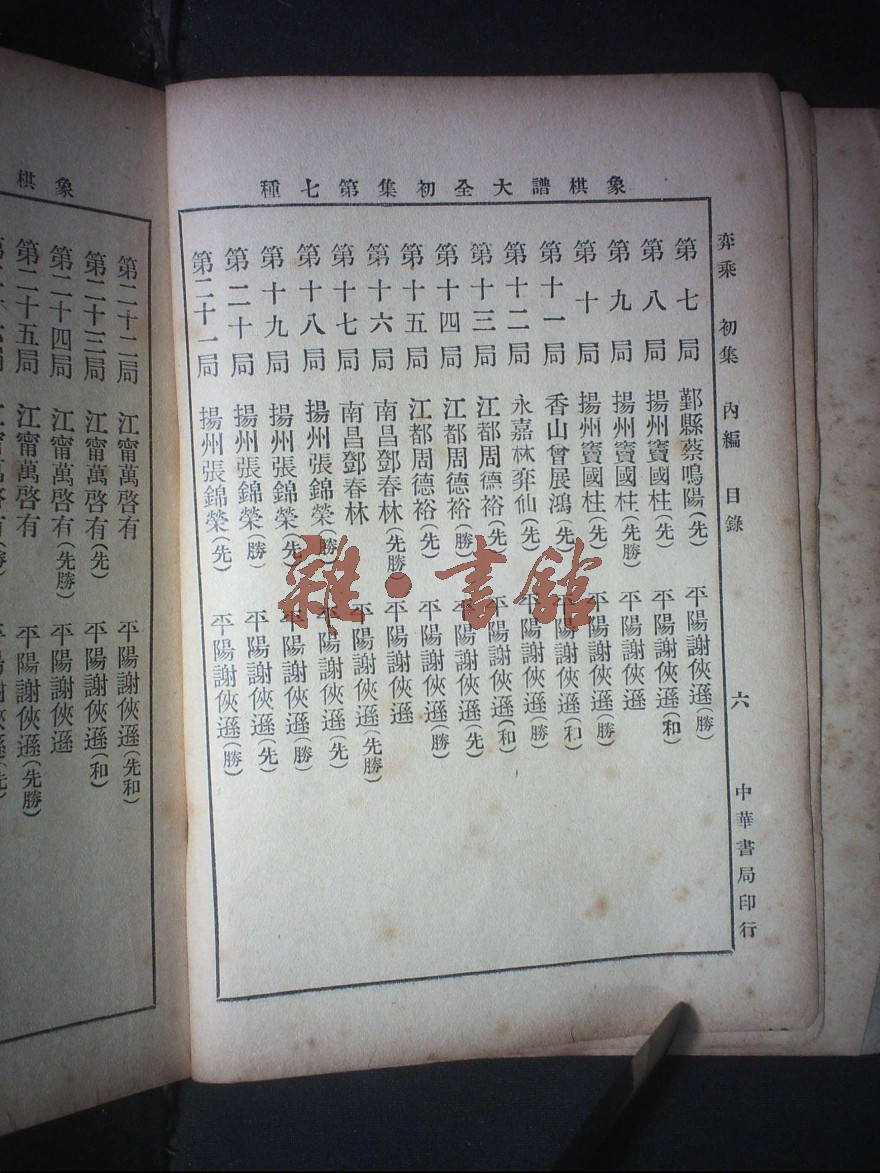 象棋譜大全初集第七種
弈乘 初集 內編 目錄 六 中華書局印行
第七局 鄞縣蔡鳴陽(先) 平陽謝俠遜(勝)
第八局 揚州竇國柱(先) 平陽謝俠遜(和)
第九局 揚州竇國柱(先勝) 平陽謝俠遜
第十局 揚州竇國柱(先) 平陽謝俠遜(勝)
第十一局 香山曾展鴻(先) 平陽謝俠遜(和)
第十二局 永嘉林弈仙(先) 平陽謝俠遜(勝)
第十三局 江都周德裕(先) 平陽謝俠遜(和)
第十四局 江都周德裕(勝) 平陽謝俠遜(先)
第十五局 江都周德裕(先) 平陽謝俠遜(勝)
第十六局 南昌鄧春林(先勝) 平陽謝俠遜
第十七局 南昌鄧春林 平陽謝俠遜(先勝)
第十八局 揚州張錦榮(勝) 平陽謝俠遜(先)
第十九局 揚州張錦榮(先) 平陽謝俠遜(勝)
第二十局 揚州張錦榮(勝) 平陽謝俠遜(先)
第二十一局 揚州張錦榮(先) 平陽謝俠遜(勝)
雜·書館
象棋
第二十二局 江甯萬啓有 平陽謝俠遜(先和)
第二十三局 江甯萬啓有(先) 平陽謝俠遜(和)
第二十四局 江甯萬啓有(先勝) 平陽謝俠遜
第二十五局 江甯萬啓有 平陽謝俠遜(先勝)